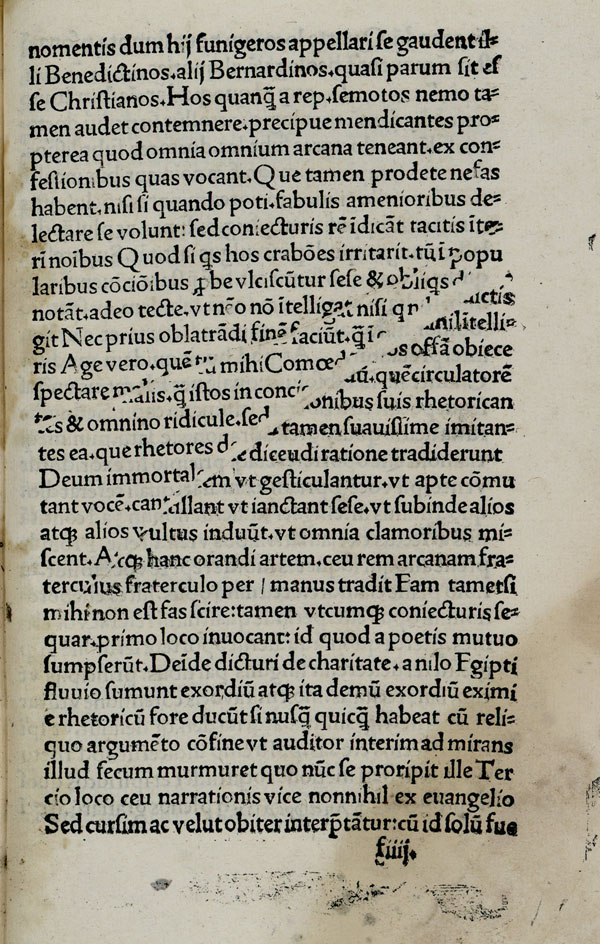 nomentis dum hij funigeros appellari se gaudent il⸗
li Benedictinos.alij Bernardinos.quasi parum sit es
se Christianos.Hos quanq̃ a rep.semotos nemo ta⸗
men audet contemnere.precipue mendicantes pro⸗
pterea quod omnia omnium arcana teneant.ex con⸗
fessionibus quas vocant.Que tamen prodete nefas
habent.nisi si quando poti.fabulis amenioribus de⸗
lectare se volunt: sed coniecturis rē idicāt tacitis īte⸗
rī noībus Quod si qs hos crabōes irritarit.tūi popu
laribus cōciōibus ꝓbe vlciscūtur sese & obliqs
notāt.adeo tecte.vt nēo nō ītelligat nisi q dictis
git Nec prius oblatrādi finē faciūt.q̃ī nil ītelli⸗
ris Age vero.quē tu mihi Comoe os offā obiece
spectare malis.q̃ istos in conci āū.quē circulatorē
tes & omnino ridicule.sed onibus suis rhetorican
tes ea.que rhetores de tamen suauissime imitan⸗
Deum immortalem dicendi ratione tradiderunt
vt gesticulantur.vt apte cōmu
tant vocē.cantillant vt ianctant sese.vt subinde alios
atq; alios vultus induūt.vt omnia clamoribus mi⸗
scent.Atq; hanc orandi artem.ceu rem arcanam fra⸗
terculus fraterculo per / manus tradit Eam tametsi
mihi non est fas scire:tamen vtcumq; coniecturis se⸗
quar.primo loco inuocant: id quod a poetis mutuo
sumpserūt.Deīde dicturi de charitate.a nilo Egipti
fluuio sumunt exordiū atq; ita demū exordiū eximi
e rhetoricū fore ducūt si nusq̃ quicq̃ habeat cū reli⸗
quo argumēto cōfine vt auditor interim ad mirans
illud secum murmuret quo nūc se proripit ille Ter
cio loco ceu narrationis vice nonnihil ex euangelio
Sed cursim ac velut obiter interp̄tātur:cū id solū fue
fiiij.